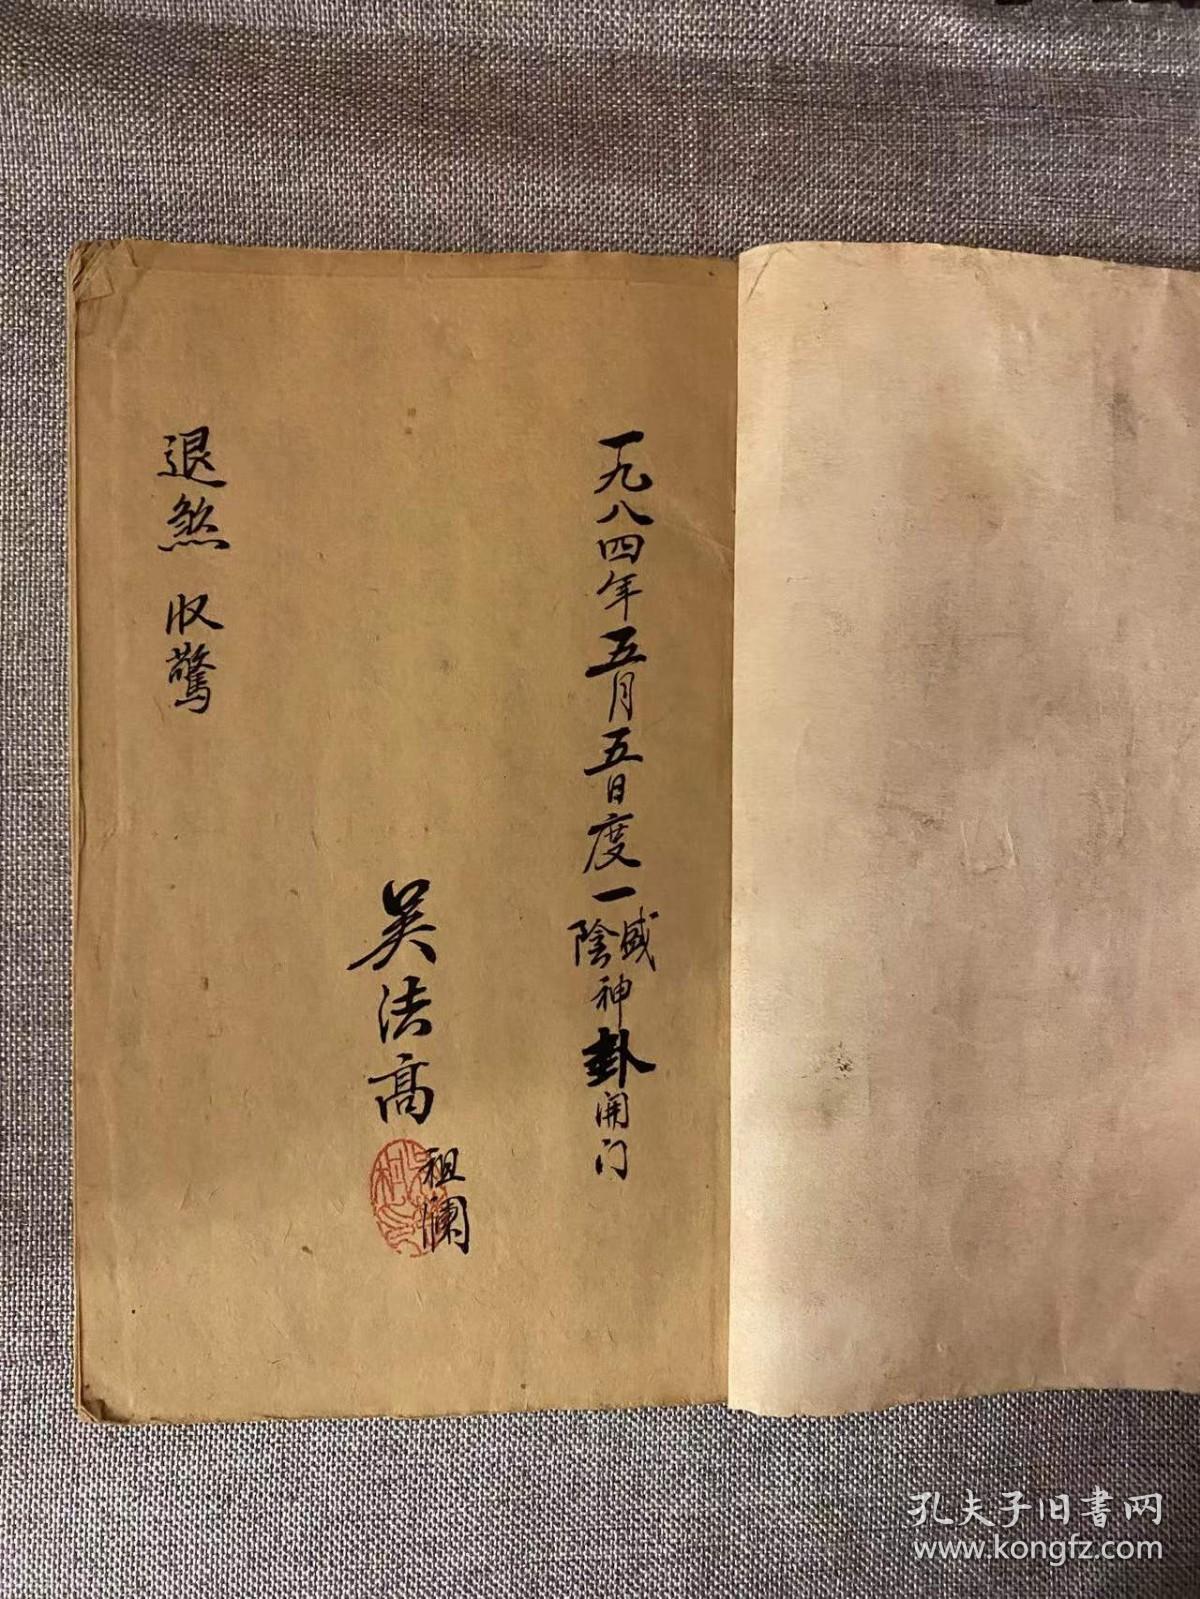 一九八四年五月五日度一陰盛神卦開门
吴法高
祖瀾
退煞 收驚
孔夫子旧書网
www.kongfz.com